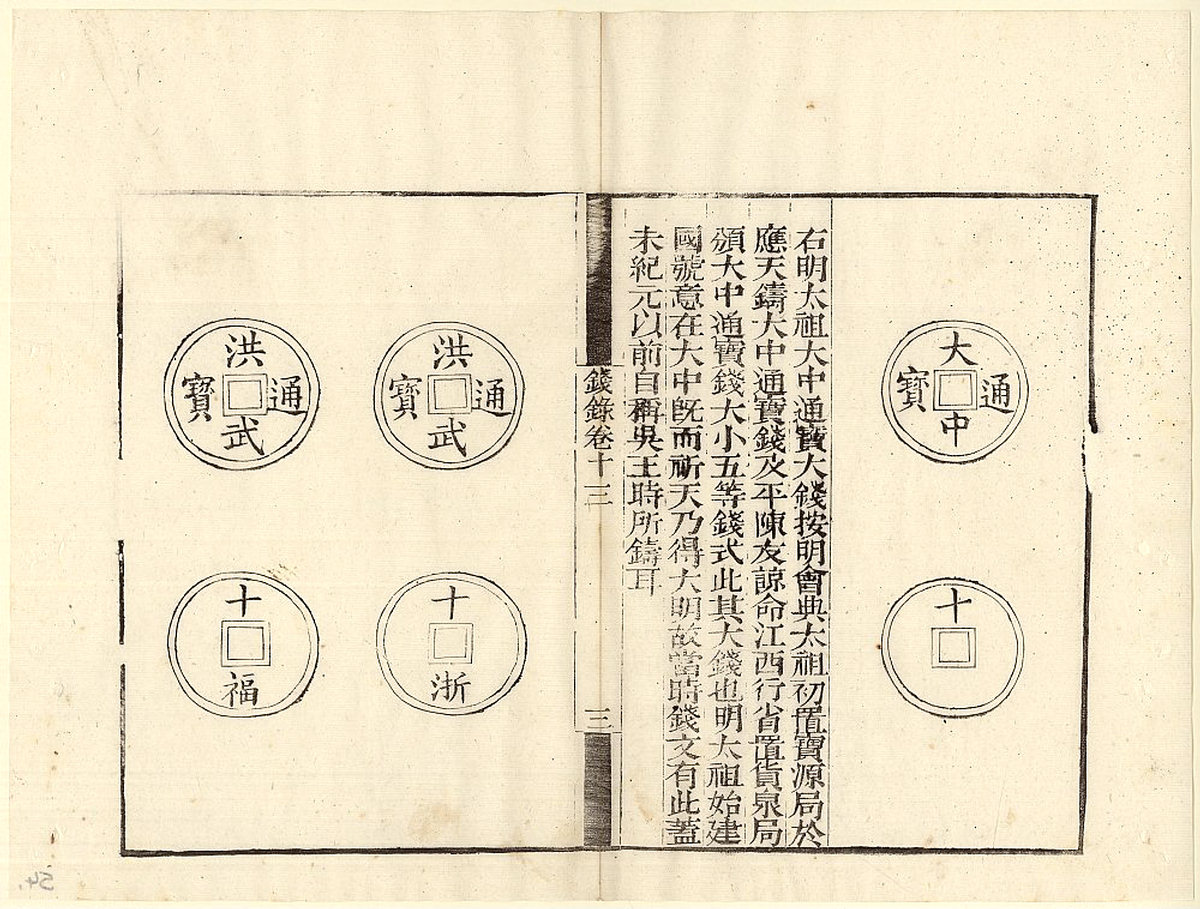 大中通寶
十
右明太祖大中通寶大錢按明會典太祖初置寶源局於
應天鑄大中通寶錢及平陳友諒命江西行省置貨泉局
頒大中通寶錢大小五等錢式此其大錢也明太祖始建
國號意在大中旣而祈天乃得大明故當時錢文有此蓋
未紀元以前自稱吳王時所鑄耳
錢錄卷十三
三
洪武通寶
十浙
洪武通寶
十福
54.